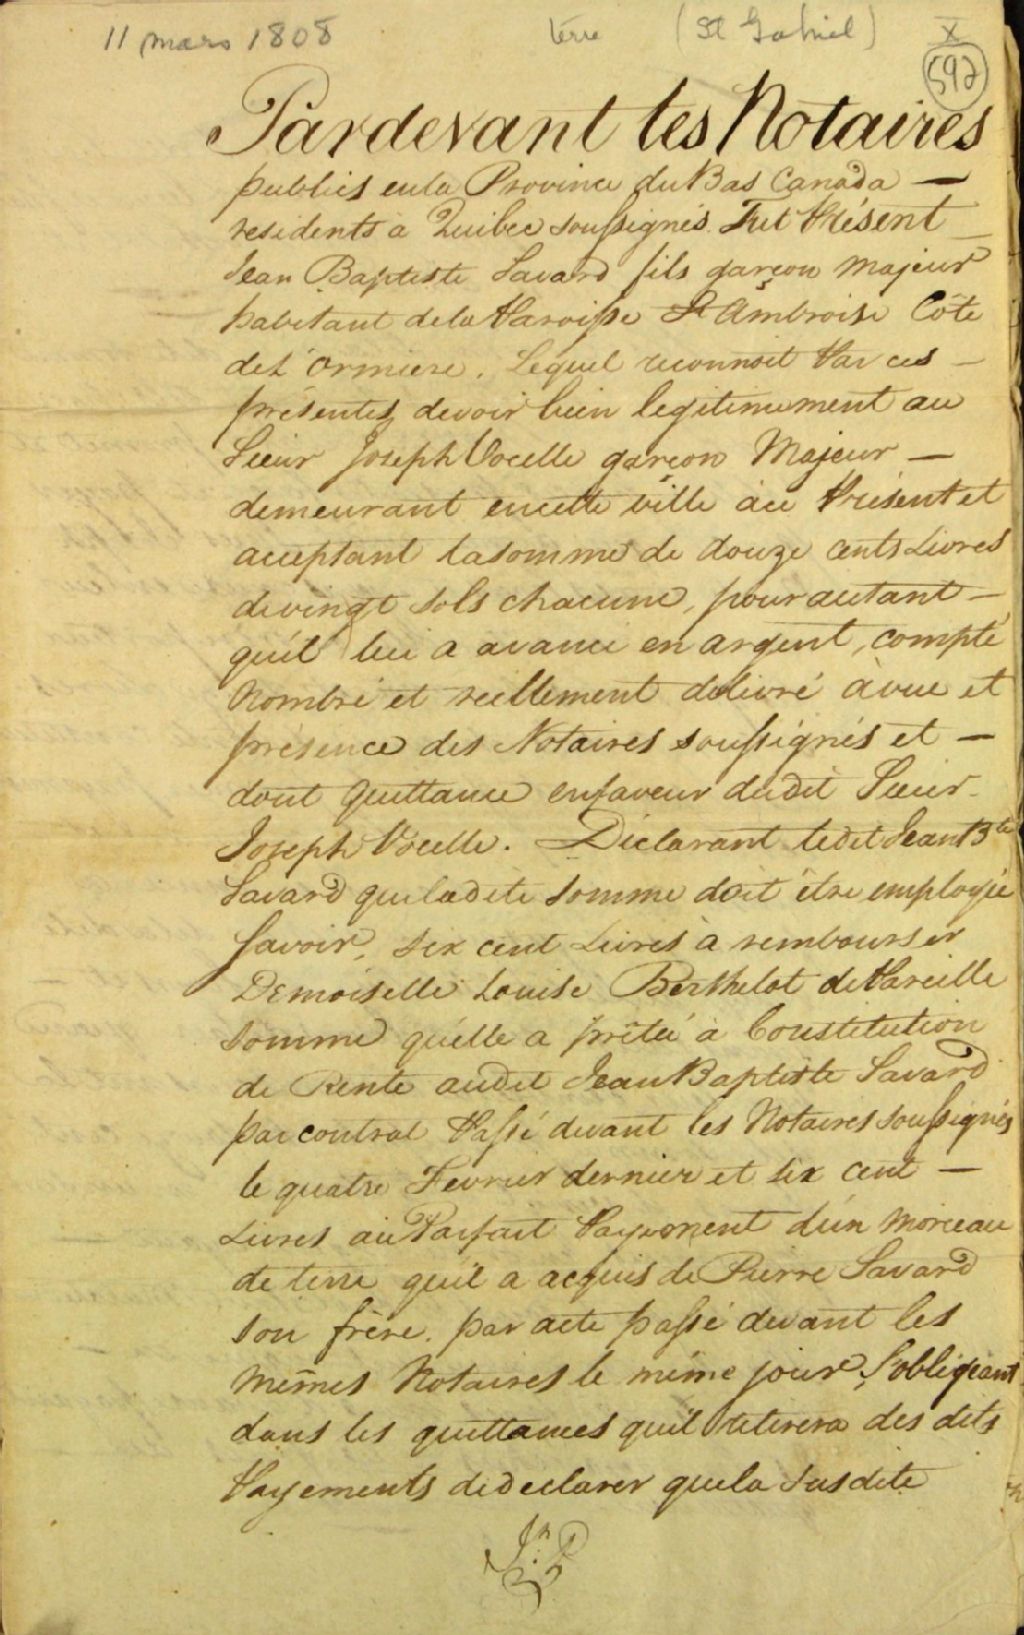 11 mars 1808 terre (St Gabriel) X
592
Pardevant les Notaires
publics en la Province du Bas Canada —
residents à Quibec soussignés. Fut Présent
Jean Baptiste Savard fils garçon majeur
habitant de la Paroisse St Ambroise Côte
de L'ormiere. Lequel reconnoit Par ces —
présentes devoir bien legitimement au
Sieur Joseph Vocelle garçon Majeur —
demeurant en cette ville à ce Présent et
acceptant la somme de douze cents Livres
de vingt sols chacune, pour autant —
qu'il lui a avancé en argent, compté
Nombré et réellement délivré à vue et
présence des Notaires soussignés et —
dont quittance en faveur dudit Sieur
Joseph Vocelle. Déclarant ledit Jean Bte
Savard que ladite somme doit être employée
Savoir, six cent Livres à rembourser
Demoiselle Louise Berthelot de Pareille
somme qu'elle a prêtée à Constitution
de Rente audit Jean Baptiste Savard
par contrat Passé devant les Notaires soussignés
le quatre Fevrier dernier et six cent —
Livres au Parfait Payement d'un morceau
de terre qu'il a acquis de Pierre Savard
son frère. par acte passé devant les
mêmes Notaires le même jour, S'obligeant
dans les quittances qu'il retirera des dits
Payements de declarer que la susdite
Jn P